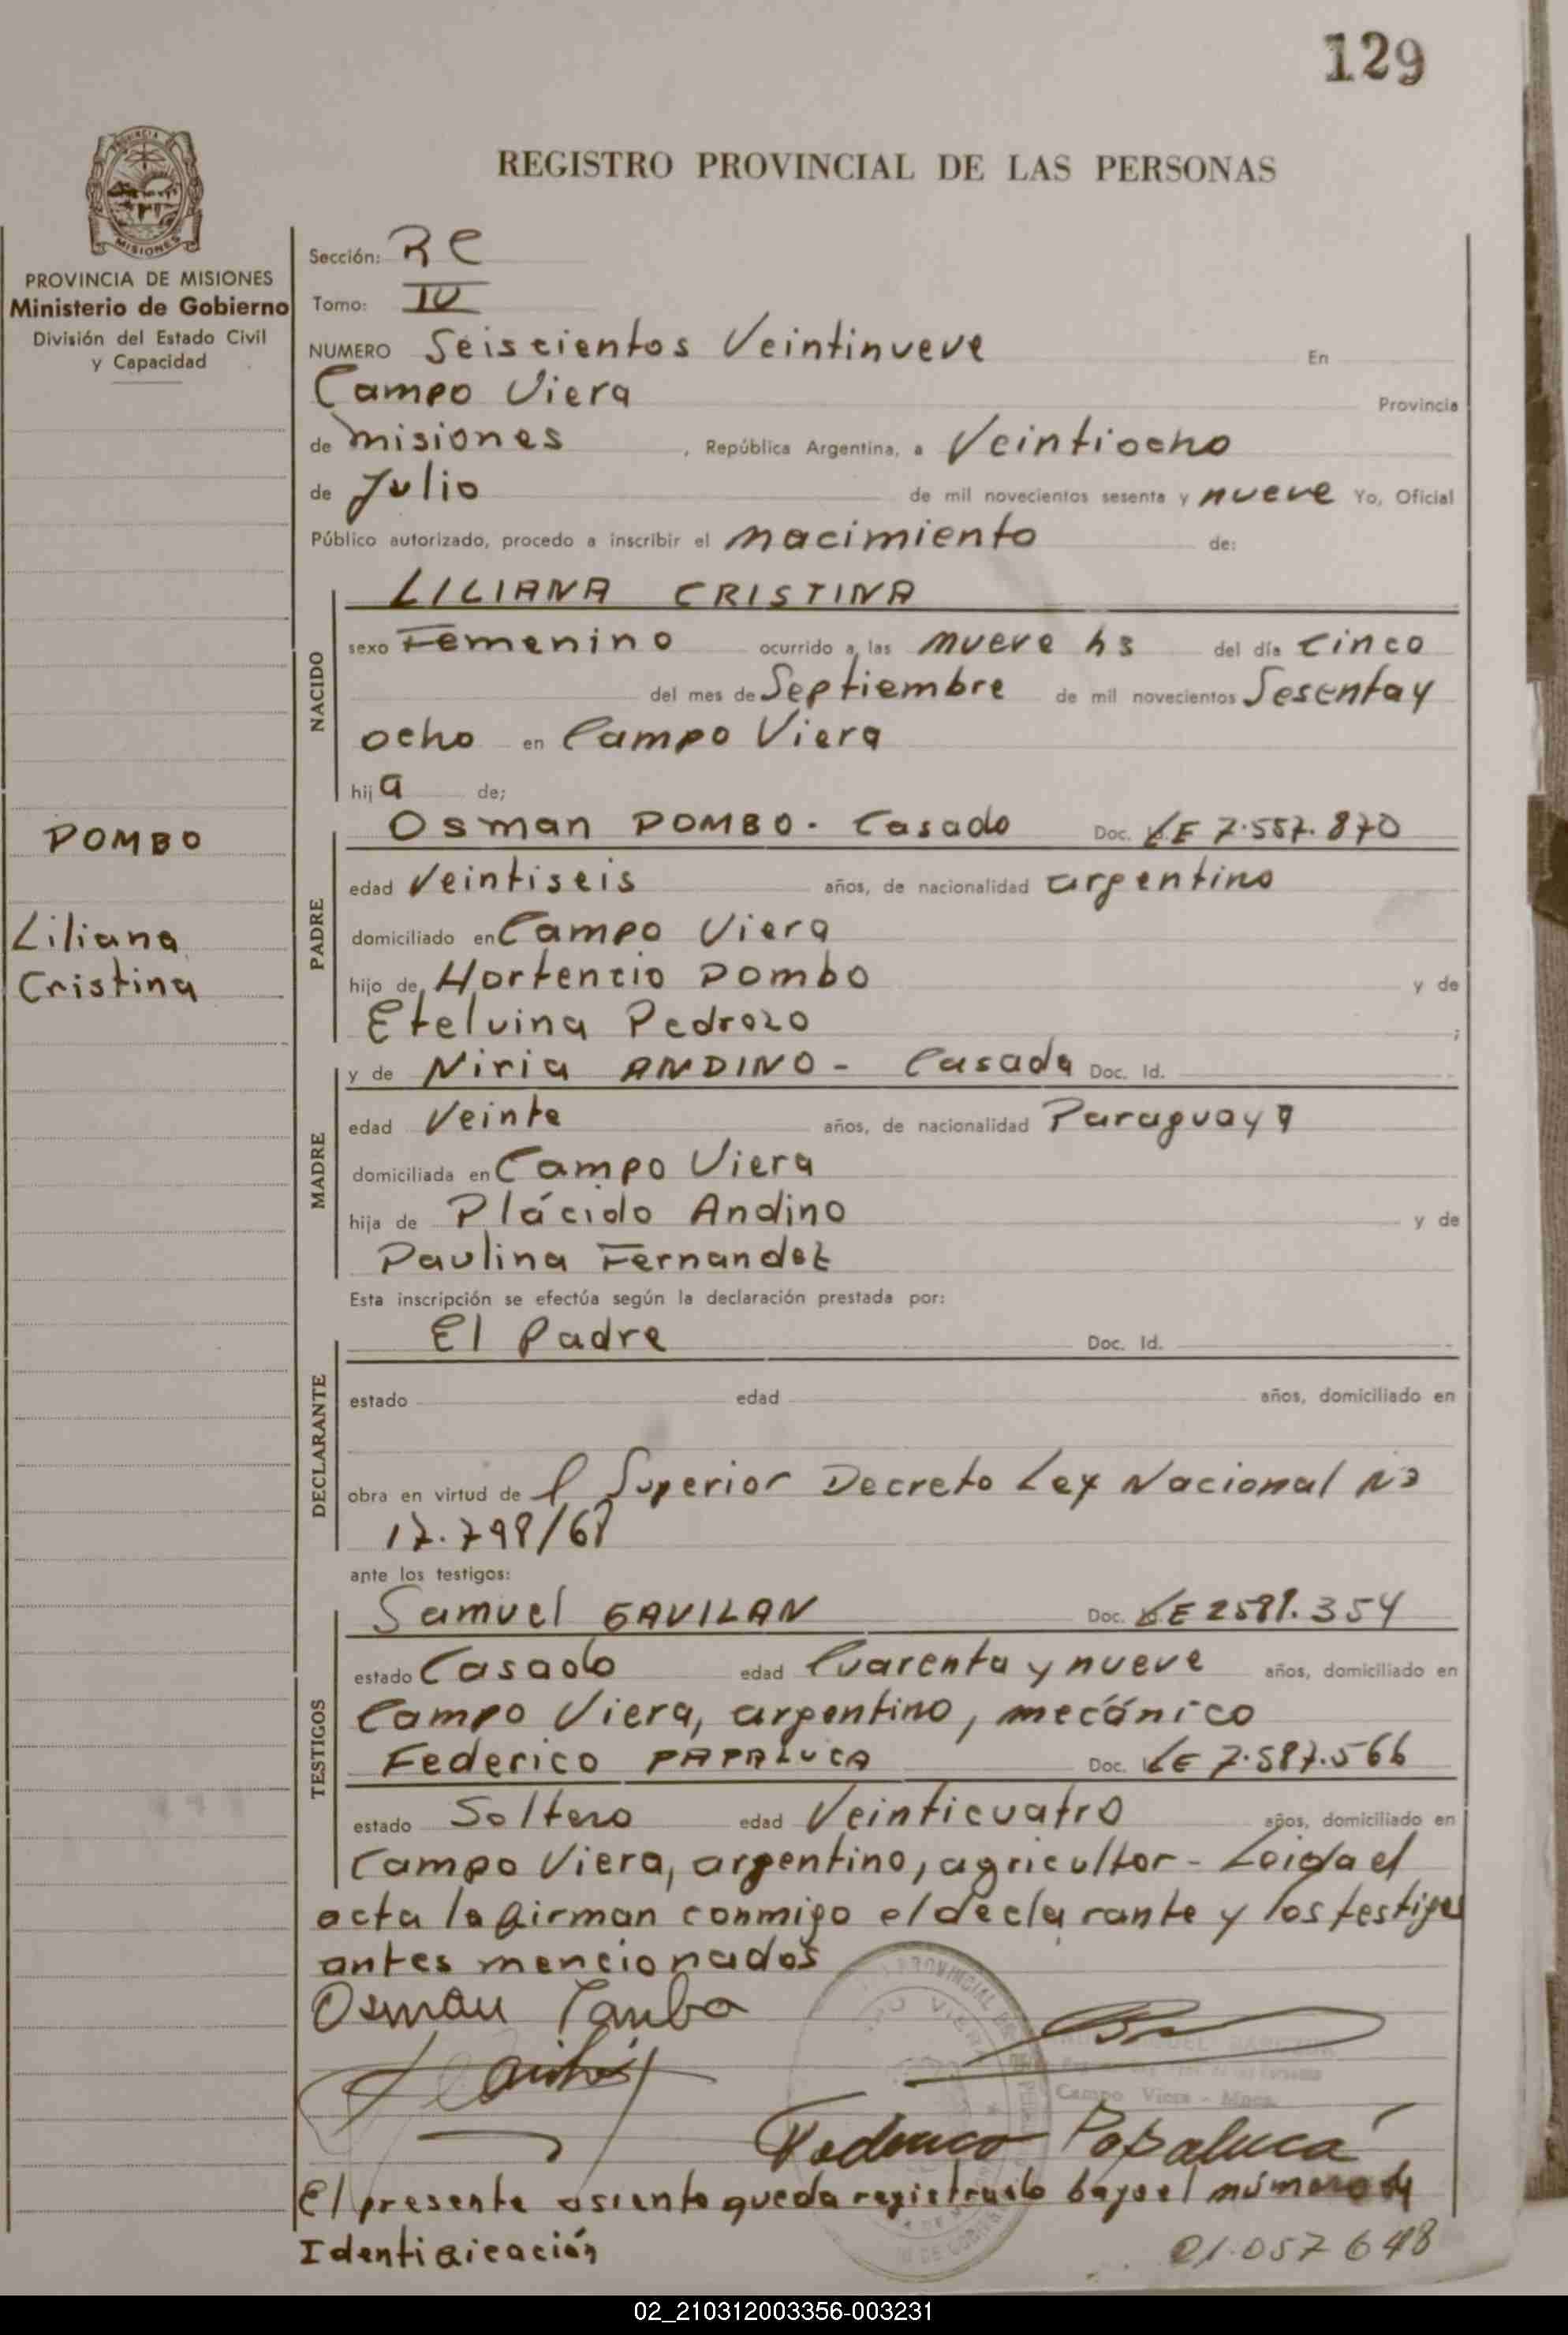 129
REGISTRO PROVINCIAL DE LAS PERSONAS
MISIONES
PROVINCIA DE MISIONES
Ministerio de Gobierno
División del Estado Civil
y Capacidad
Sección: RC
Tomo: IV
NUMERO Seiscientos Veintinueve En
Campo Viera Provincia
de misiones, República Argentina, a Veintiocho
de Julio de mil novecientos sesenta y nueve Yo, Oficial
Público autorizado, procedo a inscribir el nacimiento de:
NACIDO
LILIANA CRISTINA
sexo Femenino ocurrido a las nueve hs del día cinco
del mes de Septiembre de mil novecientos Sesenta y
ocho en Campo Viera
hija de;
POMBO
Liliana
Cristina
PADRE
Osman POMBO - Casado Doc. LE 7.557.870
edad Veintiseis años, de nacionalidad argentino
domiciliado en Campo Viera
hijo de Hortencio Pombo y de
Etelvina Pedrozo;
MADRE
y de Niria ANDINO - Casada Doc. Id.
edad Veinte años, de nacionalidad Paraguaya
domiciliada en Campo Viera
hija de Plácido Andino y de
Paulina Fernandez
Esta inscripción se efectúa según la declaración prestada por:
DECLARANTE
El Padre Doc. Id.
estado edad años, domiciliado en
obra en virtud de l Superior Decreto Ley Nacional No
17.798/68
ante los testigos:
TESTIGOS
Samuel GAVILAN Doc. LE 2581.354
estado Casado edad Cuarenta y nueve años, domiciliado en
Campo Viera, argentino, mecánico
Federico PAPALUCA Doc. LE 7.587.566
estado Soltero edad Veinticuatro años, domiciliado en
Campo Viera, argentino, agricultor - Leida el
acta la firman conmigo el declarante y los testigos
antes mencionados
Osman Pombo
Campo Viera - Mnes.
Federico Papaluca
El presente asiento queda registrado bajo el número de
Identificación 01.057648
02_210312003356-003231